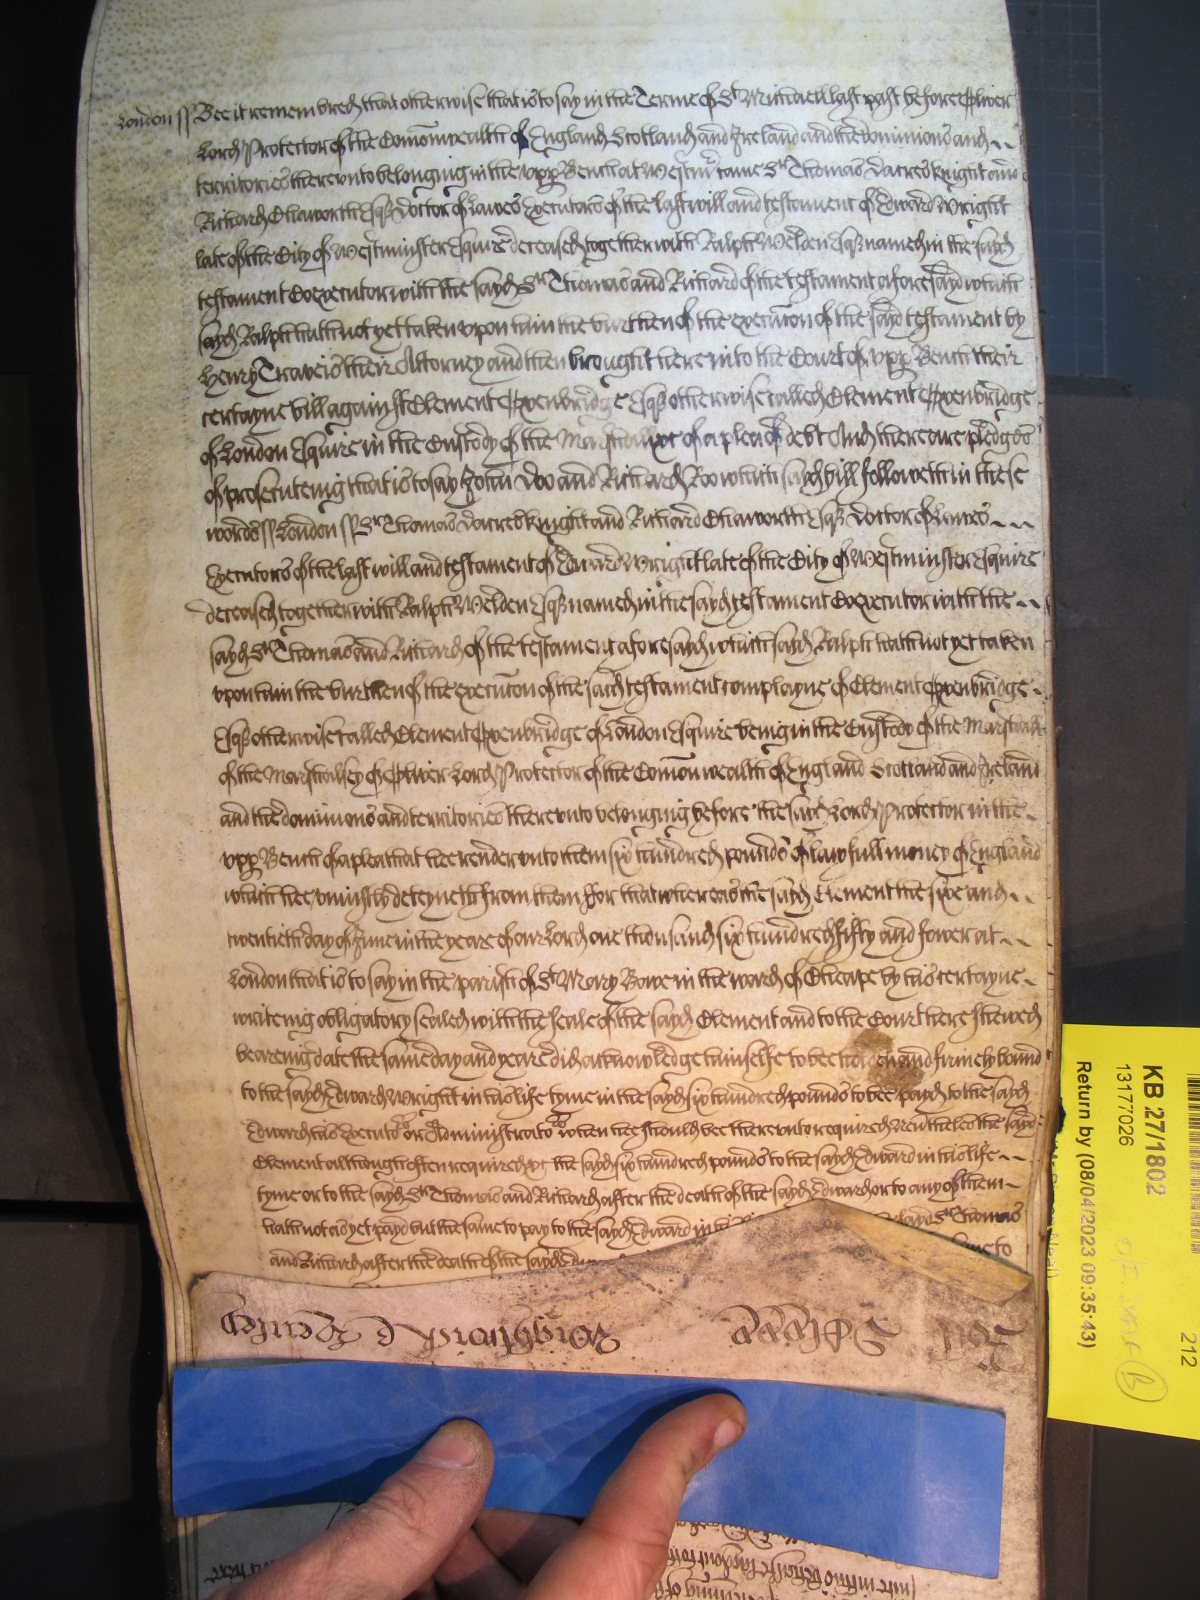 London ss Bee it remembred that otherwise that is to say in the Terme of St Michaell last past before Oliver
Lord Protector of the Comonwealth of England Scotland and Ireland and the dominions and
territories thereunto belonging in the upp Bench at Westmr came Sr Thomas Dacres knight and
Richard Chaworth Esqr Doctor of Lawes Executors of the last will and testament of Edward Wright
late of the City of Westminster Esquire deceased together with Ralph Welden Esqr named in the sayd
testament Coexecutor with the sayd Sr Thomas and Richard of the testament aforesayd which
sayd Ralph hath not yet taken upon him the burthen of the execucon of the sayd testament by
Henry Travers their Attorney and then brought here into the Court of upp Bench their
certayne bill against Clement Oxenbridge Esqr otherwise called Clement Oxenbridge
of London Esquire in the Custody of the Marshall &c of a plea of debt And there are pledges
of prosecuteing that is to say John Doo and Richard Roo which sayd bill followeth in these
words ss London ss Sr Thomas Dacres knight and Richard Chaworth Esqr Doctor of Lawes
Executors of the last will and testament of Edward Wright late of the City of Westminster Esquire
deceased together with Ralph Welden Esqr named in the sayd testament Coexecutor with the
sayd Sr Thomas and Richard of the testament aforesayd which sayd Ralph hath not yet taken
upon him the burthen of the execucon of the sayd testament complayne of Clement Oxenbridge
Esqr otherwise called Clement Oxenbridge of London Esquire being in the Custody of the Marshall
of the Marshalsey of Oliver Lord Protector of the Comonwealth of England Scotland and Ireland
and the dominions and territories thereunto belonging before the sayd Lord Protector in the
upp Bench of a plea that hee render unto them six hundred pounds of lawfull money of England
which hee uniustly deteyneth from them ffor that whereas the sayd Clement the sixe and
twentieth day of June in the yeare of our Lord one thousand six hundred fifty and fower at
London that is to say in the parish of St Mary Bowe in the ward of Cheape by his certayne
writeing obligatory sealed with the seale of the sayd Clement and to the Court here shewed
beareing date the same day and yeare did acknowledge himselfe to bee holden and firmely bound
to the sayd Edward Wright in his life tyme in the sayd six hundred pounds to bee payd to the sayd
Edward his executors or Administrators when hee should bee thereunto required Neverthelesse the sayd
Clement although often required &c the sayd six hundred pounds to the sayd Edward in his life
tyme or to the sayd Sr Thomas and Richard after the death of the sayd Edward or to any of them
hath not as yet payd but the same to pay to the sayd Edward in his sayd Sr Thomas
and Richard after the death of the sayd
KB 27/1802
13177026
Return by (08/04/2023 09:35:43)
212